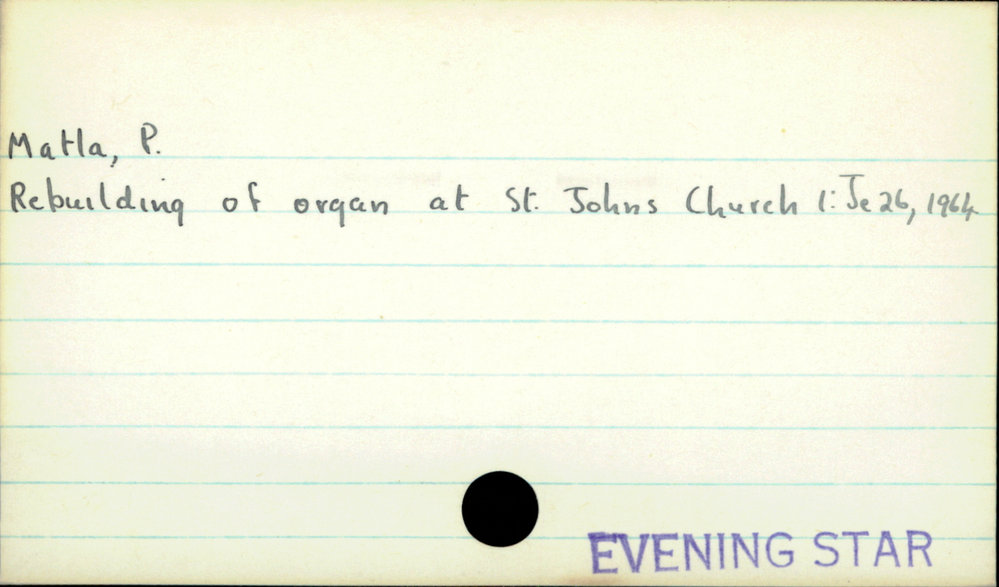 Matla, P.
Rebuilding of organ at St. Johns Church 1: Je 26, 1964
EVENING STAR